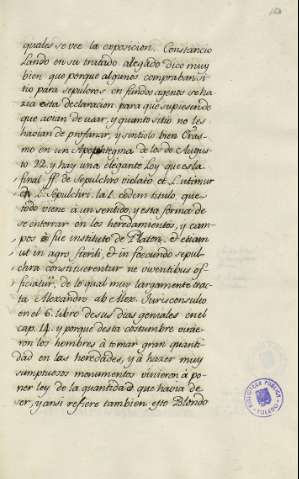 quales se ve la exposicion. Constancio
Lando en su tratado alegado dice muy
bien que porque algunos compraban si-
tio para sepulcros en fundos agenos se ha-
zia esta declaracion para que supiesen de
que avian de usar, y quanto sitio no les
havian de profanar, y sentiolo bien Eras-
mo en un Apothegma de los de Augus-
to 22. y hay una elegante Ley que es la
final ff de sepulchro violato et L utimur
L. Sepulchri. la L. eodem titulo, que
todo viene à un sentido, y esta forma de
se enterrar en los heredamientos, y cam-
pos è fue instituto de Platon. et etiam
ut in agro sterili, et in foecundo sepul-
chra constituerentur ne viventibus of-
ficiatur, de lo qual mui largamente trac-
ta Alexandro ab Alex. Jurisconsulto
en el 6. libro de sus dias geniales en el
cap. 14. y porque desta costumbre vinie-
ron los hombres à tomar gran quanti-
dad en las heredades, y à hazer muy
sumptuosos monumentos vinieron à po-
ner ley de la quantidad que havia de
ser, y ansi refiere tambien esto Blondo
BIBLIOTECA PUBLICA
TOLEDO